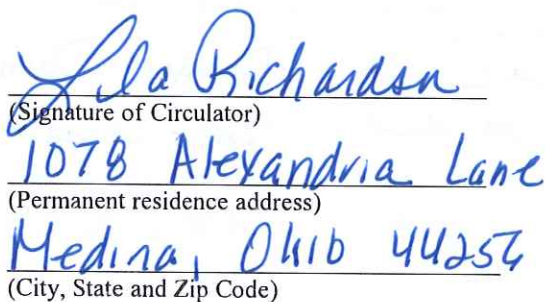 Lila Richardson
(Signature of Circulator)
1078 Alexandria Lane
(Permanent residence address)
Medina, Ohio 44256
(City, State and Zip Code)